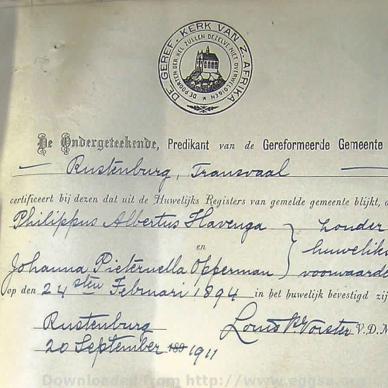 DE GEREF. KERK VAN Z. AFRIKA
DE POORTEN DER HEL ZULLEN DEZELVE NIET OVERWELDIGEN
De Ondergeteekende, Predikant van de Gereformeerde Gemeente
Rustenburg, Transvaal
certificeert bij dezen dat uit de Huwelijks Registers van gemelde gemeente blijkt, d
Philippus Albertus Havenga } zonder
en huwelik
Johanna Pieternella Opperman } voorwaarde
op den 24sten Februari 1894 in het huwelijk bevestigd zij
Rustenburg Louis P. Vorster V.D.M
20 September 189 1911
Downloaded from http://www.eggsa.